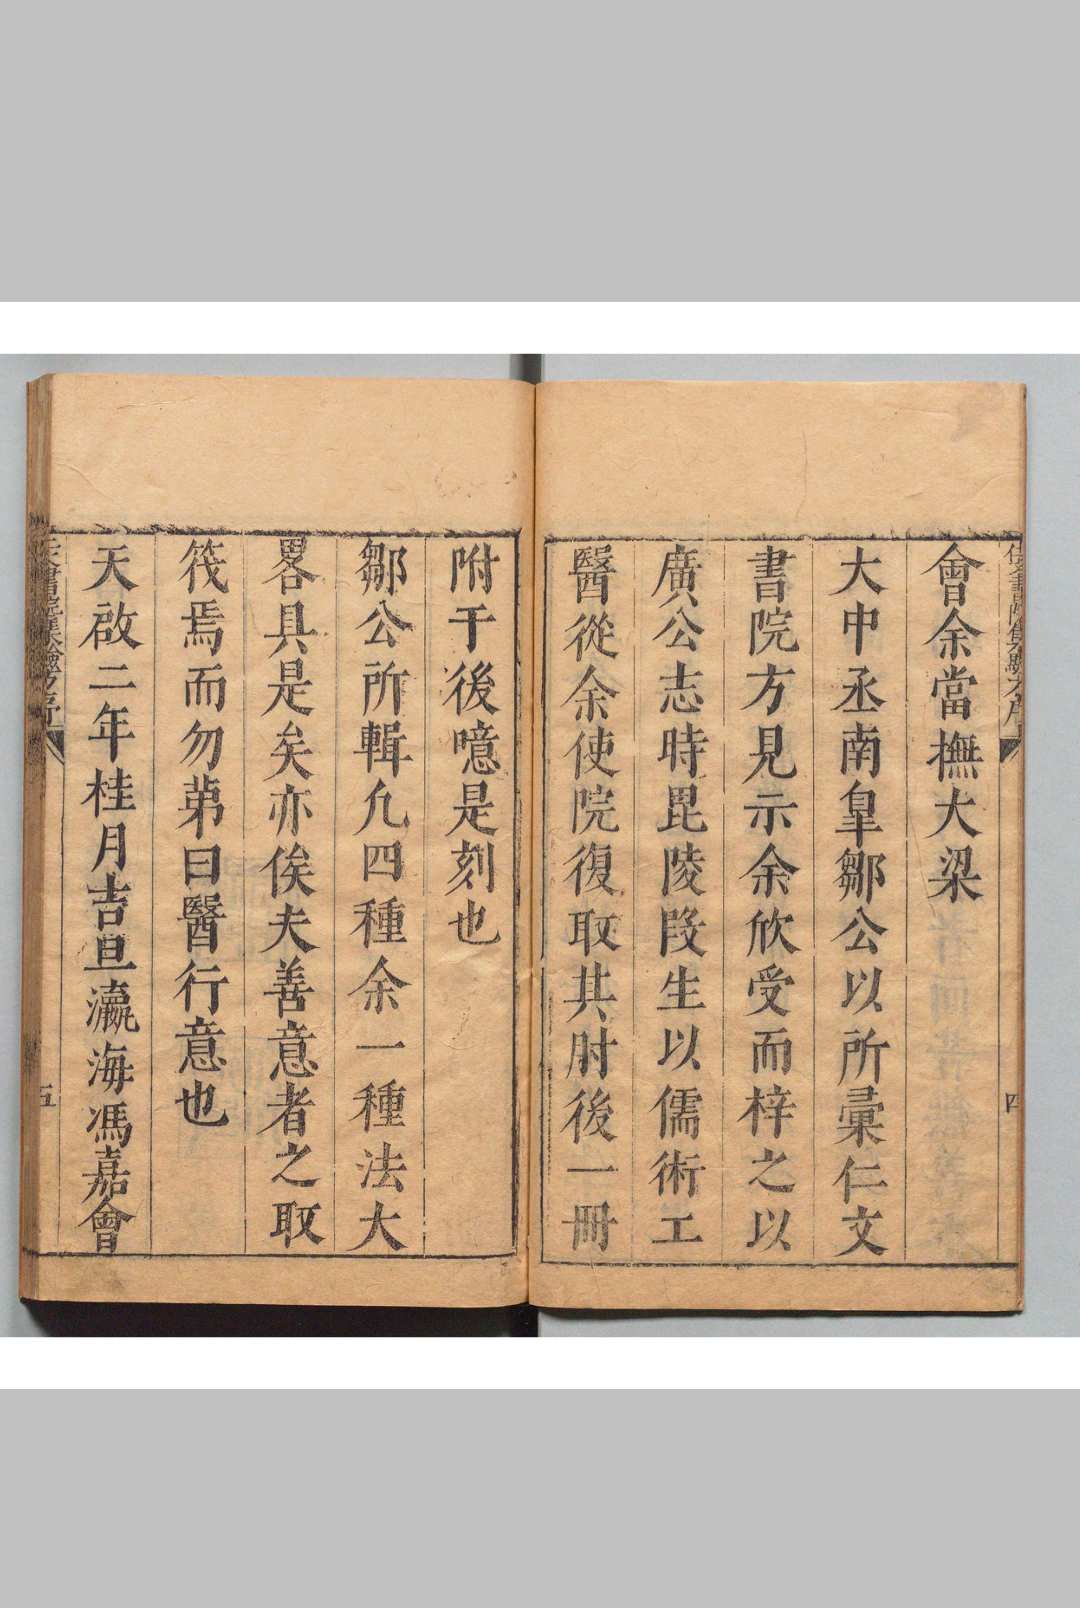 會余當撫大梁
大中丞南皐鄒公以所彙仁文
書院方見示余欣受而梓之以
廣公志時毘陵段生以儒術工
醫從余使院復取其肘後一冊
附于後噫是刻也
鄒公所輯凢四種余一種法大
畧具是矣亦俟夫善意者之取
筏焉而勿苐曰醫行意也
天啟二年桂月吉旦瀛海馮嘉會
四
五